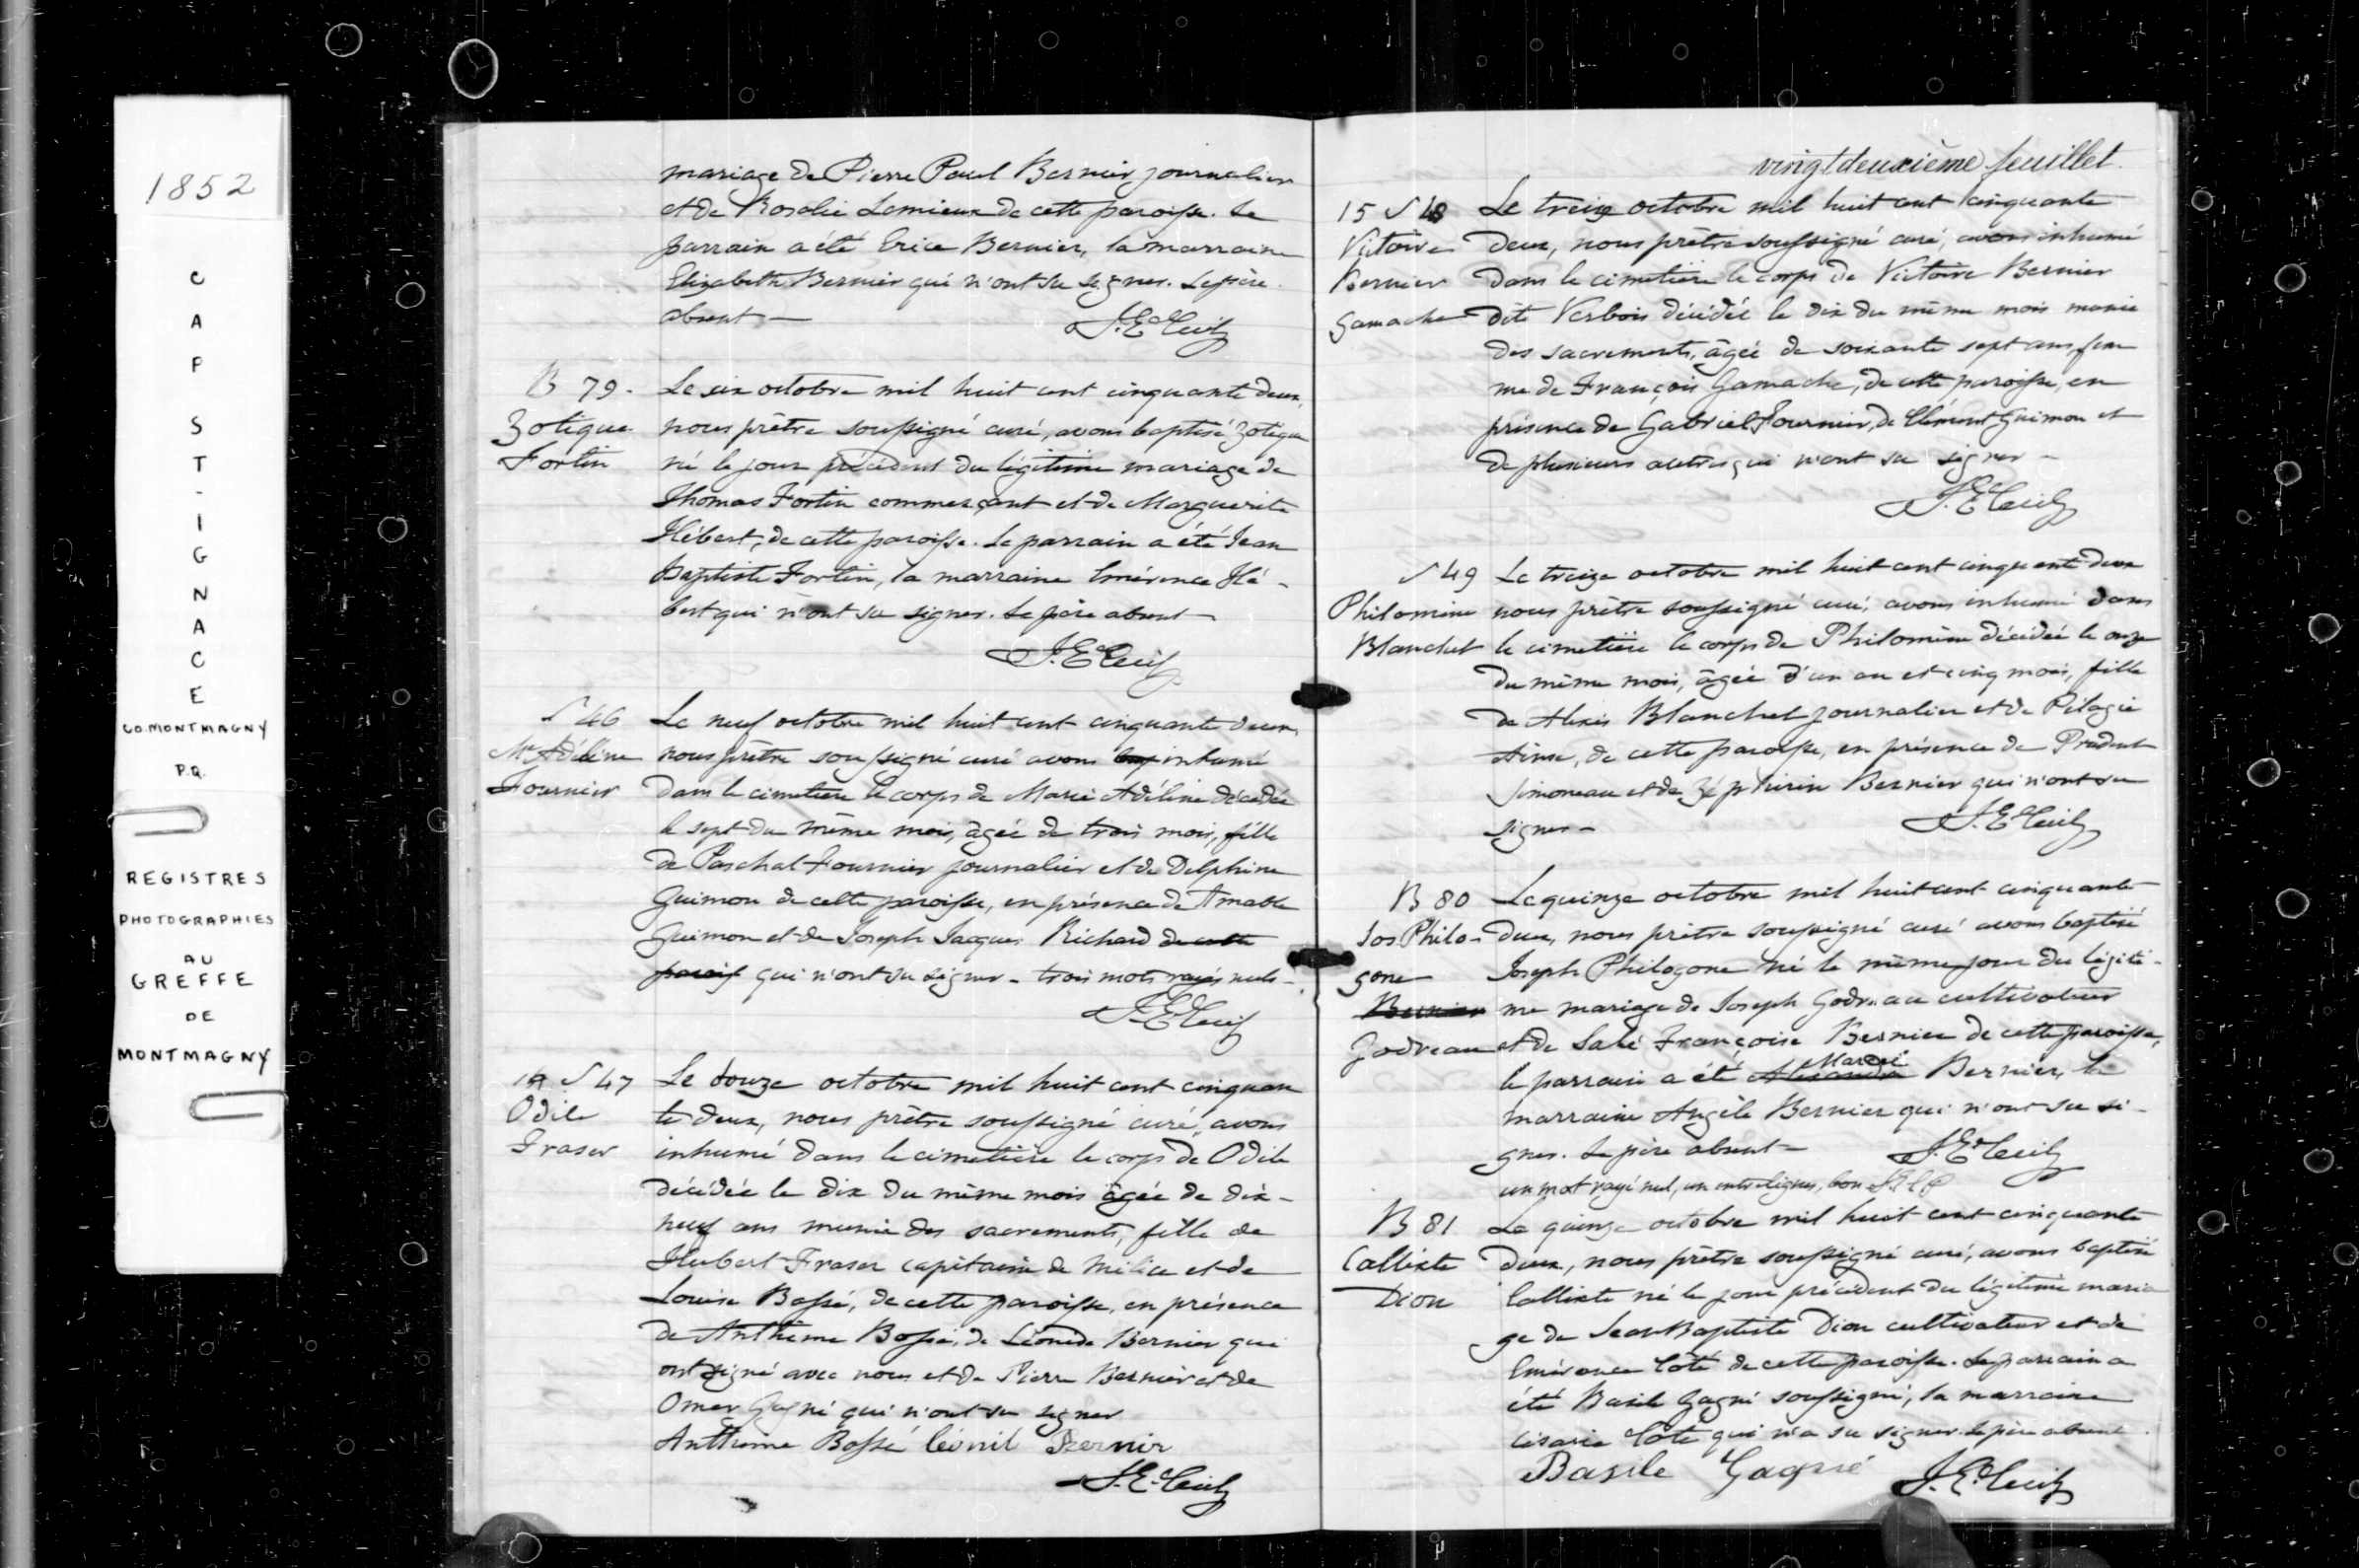 1852
C
A
P
S
T
-
I
G
N
A
C
E
CO. MONTMAGNY
P.Q.
REGISTRES
PHOTOGRAPHIES
AU
GREFFE
DE
MONTMAGNY
mariage de Pierre Paul Bernier journalier
et de Rosalie Lemieux de cette paroisse. Le
parrain a été Bernier, la marraine
Elizabeth Bernier qui n'ont su signer. Le père
absent —
B 79.
Zotique
Fortin
Le six octobre mil huit cent cinquante deux,
nous prêtre soussigné curé, avons baptisé Zotique
né le jour précédent du légitime mariage de
Thomas Fortin commerçant et de Marguerite
Hébert, de cette paroisse. Le parrain a été Jean
Baptiste Fortin, la marraine Emérence Hé-
bert qui n'ont su signer. Le père absent —
S 46
Mie Adéline
Fournier
Le neuf octobre mil huit cent cinquante deux,
nous prêtre soussigné curé avons inhumé
dans le cimetière le corps de Marie Adéline décédée
le sept du même mois, âgée de trois mois, fille
de Paschal Fournier journalier et de Delphine
Guimon de cette paroisse, en présence de Amable
Guimon et de Joseph Jacques Richard de cette
parois qui n'ont su signer - trois mots rayés nuls -
S 47
Odile
Fraser
Le douze octobre mil huit cent cinquan
te deux, nous prêtre soussigné curé, avons
inhumé dans le cimetière le corps de Odile
décédée le dix du même mois âgée de dix-
neuf ans munie des sacrements, fille de
Hubert Fraser capitaine de milice et de
Louise Bossé, de cette paroisse, en présence
de Anthime Bossé, de Léonide Bernier qui
ont signé avec nous et de Pierre Bernier et de
Omer Gagné qui n'ont su signer
Anthime Bossé Léonil Bernir
vingt deuxième feuillet.
15 S 48
Victoire
Bernier
Gamache
Le treize octobre mil huit cent cinquante
deux, nous prêtre soussigné curé, avons inhumé
dans le cimetière le corps de Victoire Bernier
dite Verbois décédée le dix du même mois munie
des sacrements, âgée de soixante sept ans, fem
me de François Gamache, de cette paroisse, en
présence de Gabriel Fournier, de Clément Guimon et
de plusieurs autres qui n'ont su signer -
S 49
Philomine
Blanchet
Le treize octobre mil huit cent cinquante deux
nous prêtre soussigné curé, avons inhumé dans
le cimetière le corps de Philomène décédée le onze
du même mois, âgée d'un an et cinq mois, fille
de Alexis Blanchet journalier et de Pélagie
, de cette paroisse, en présence de Prudent
Simoneau et de Zéphirin Bernier qui n'ont su
signer -
B 80
Jos Philo-
gone
Bernier
Godreau
Le quinze octobre mil huit cent cinquante
deux, nous prêtre soussigné curé avons baptisé
Joseph Philogone né le même jour du légiti-
me mariage de Joseph Godreau cultivateur
et de Françoise Bernier de cette paroisse,
Mardi
le parrain a été Alexandre Bernier, la
marraine Angèle Bernier qui n'ont su si-
gner. Le père absent -
un mot rayé nul, un entre lignes, bon
B 81
Callixte
Dion
Le quinze octobre mil huit cent cinquante
deux, nous prêtre soussigné curé, avons baptisé
Callixte né le jour précédent du légitime maria
ge de Jean Baptiste Dion cultivateur et de
Emérence Côté de cette paroisse. Le parrain a
été Basile Gagné soussigné, la marraine
Césarie Côté qui n'a su signer. Le père absent.
Basile Gagné